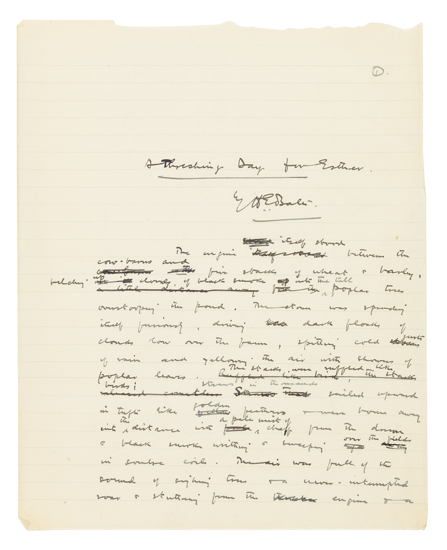 ①
A Threshing Day for Esther.
by H.E. Bates.
itself stood
The engine between the
cow-barns and
the five stacks of wheat & barley,
belching up clouds of black smoke into the tall
poplar trees
overtopping the pond. The storm was spending
itself furiously, driving dark flocks of
clouds low over the farm, spitting cold gusts
of rain and yellowing the air with showers of
poplar leaves. The stacks were ruffled like
birds; straws in thousands sailed upward
in tufts like golden feathers & were borne away
into the distance with a pale mist of chaff from the drum
& black smoke writhing & sweeping over the fields
in sombre coils. The air was full of the
sound of sighing trees & a never-interrupted
roar & stuttering from the engine & a